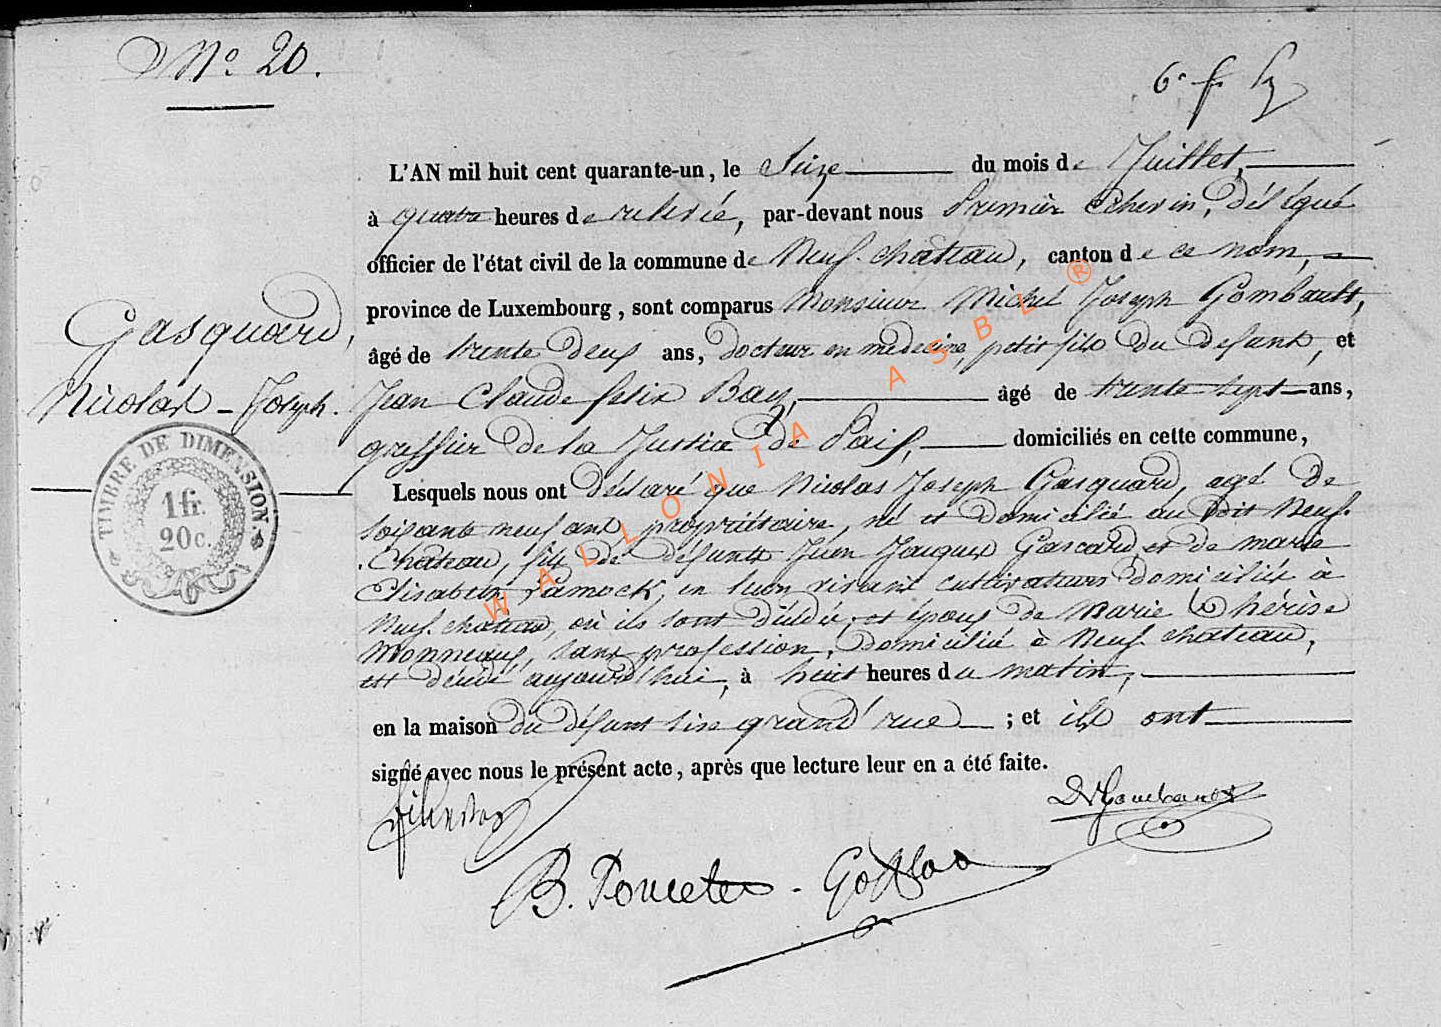 Nº 20.
6e f.
L'AN mil huit cent quarante-un, le Seize du mois de Juillet,
à quatre heures de relevée, par-devant nous Premier Echevin, délégué
officier de l'état civil de la commune de Neuf-chateau, canton de ce nom,
province de Luxembourg, sont comparus Monsieur Michel Joseph Gombault,
âgé de trente deux ans, docteur en medecine, petit fils du defunt, et
Jean Claude felix Bay, âgé de trente sept ans,
greffier de la Justice de Paix, domiciliés en cette commune,
Lesquels nous ont déclaré que Nicolas Joseph Gasquard, agé de
soixante neuf ans propriétaire, né et domicilié au dit Neuf-
Chateau, fils de défunts Jean Jacques Gascard, et de marie
Elisabeth Lamock, en leur vivant cultivateurs domiciliés à
Neuf-chateau, où ils sont décédés, et époux de Marie Thérèse
Monneaux, sans profession, domiciliée à Neuf chateau,
est décédé aujourd'hui, à huit heures du matin,
en la maison du défunt sise grand'rue ; et ils ont
signé avec nous le présent acte, après que lecture leur en a été faite.
Gasquard,
Nicolas-Joseph.
TIMBRE DE DIMENSION.
1 fr.
20 c.
Dr Gombault
B. Poncelet
WALLONIA ASBL ®